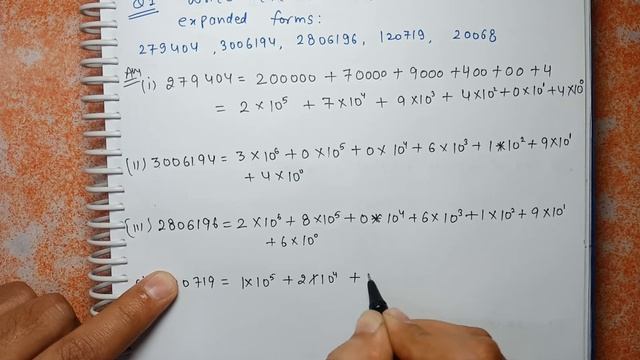 expanded forms:
279404, 3006194, 2806196, 120719, 20068
Ans (i) 279404 = 200000 + 70000 + 9000 + 400 + 00 + 4
= 2 × 10⁵ + 7 × 10⁴ + 9 × 10³ + 4 × 10² + 0 × 10¹ + 4 × 10⁰
(ii) 3006194 = 3 × 10⁶ + 0 × 10⁵ + 0 × 10⁴ + 6 × 10³ + 1 × 10² + 9 × 10¹
+ 4 × 10⁰
(iii) 2806196 = 2 × 10⁶ + 8 × 10⁵ + 0 × 10⁴ + 6 × 10³ + 1 × 10² + 9 × 10¹
+ 6 × 10⁰
0719 = 1 × 10⁵ + 2 × 10⁴ +